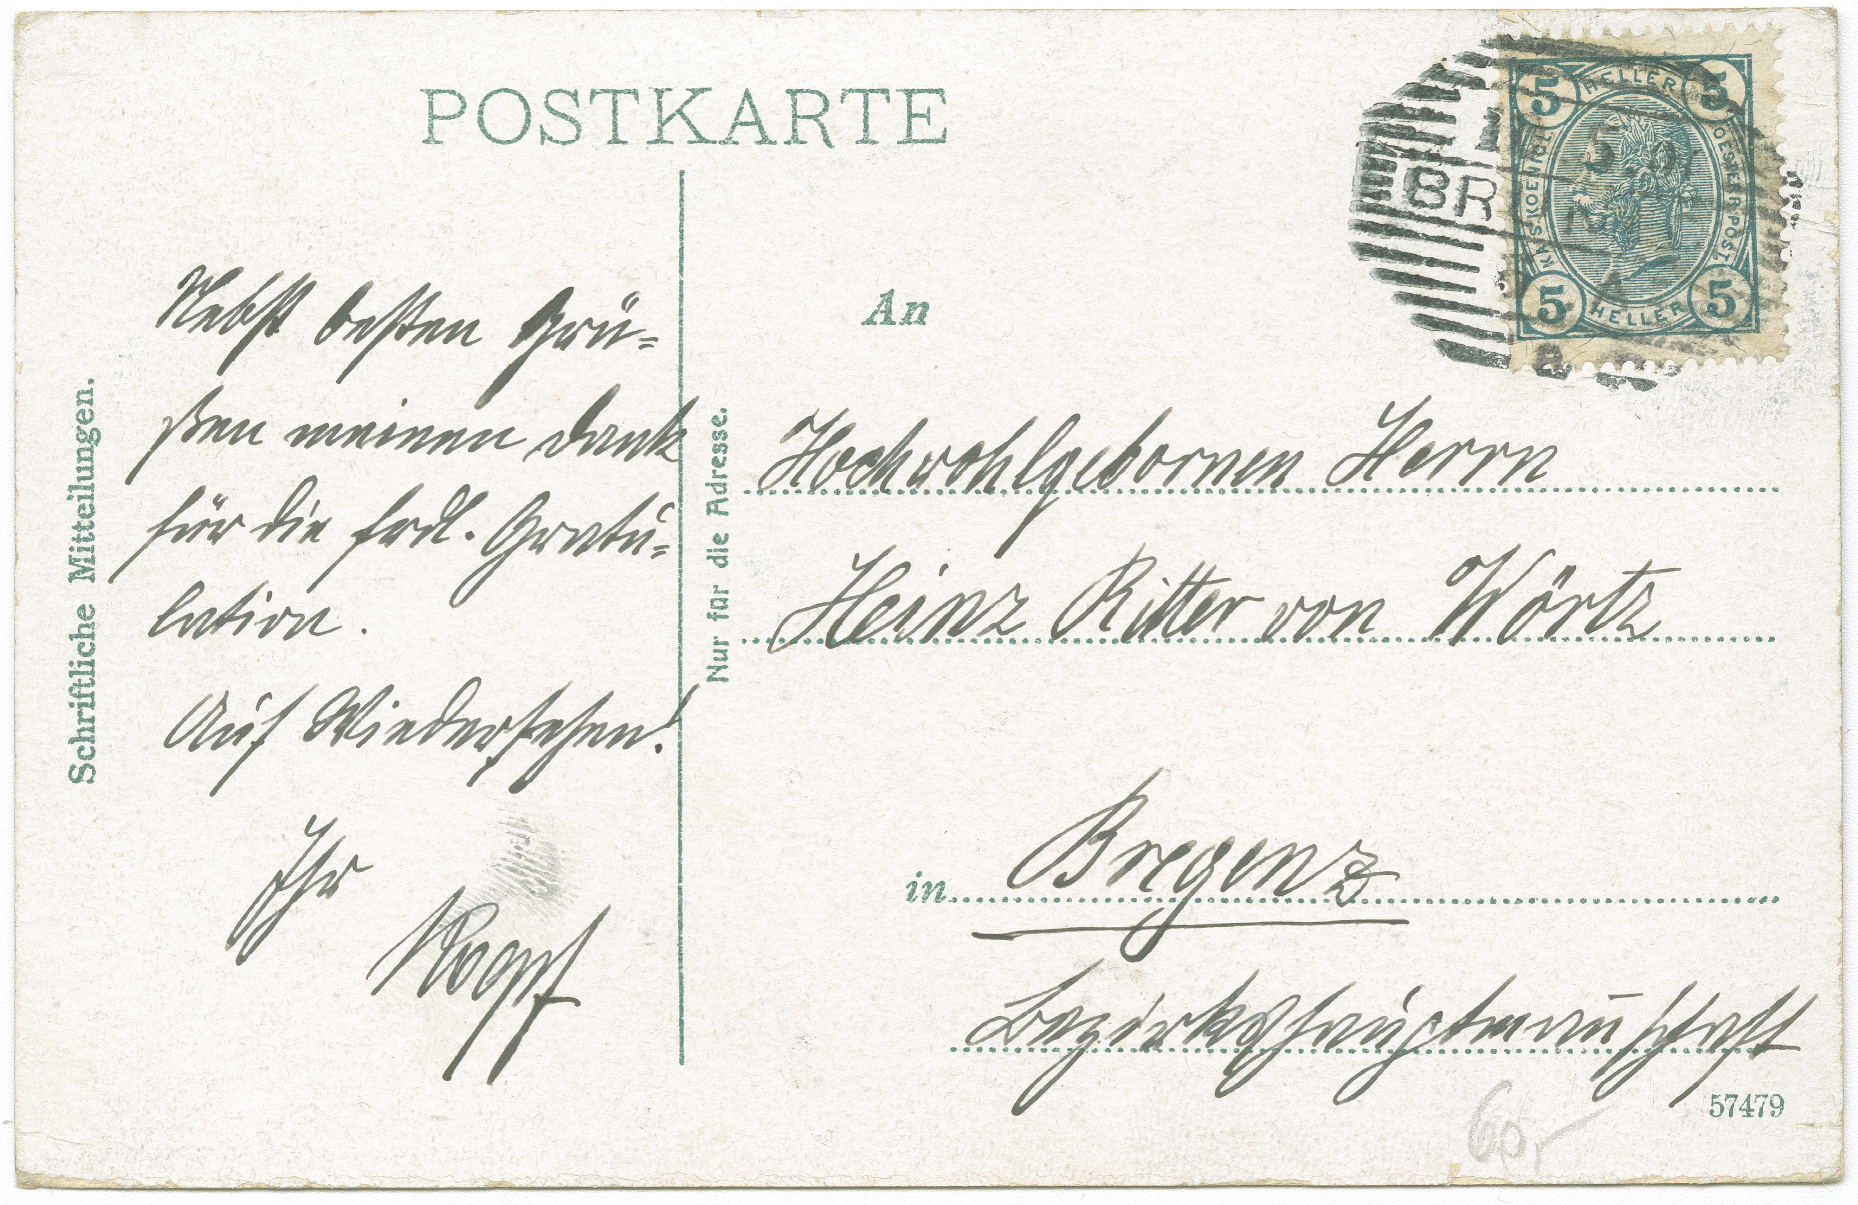 POSTKARTE
Schriftliche Mitteilungen.
Nebst besten Grü=
ßen meinen Dank
für die frdl. Gratu=
lation.
Auf Wiedersehen!
Ihr
Nur für die Adresse.
5 HELLER 5
KAIS. KOENIGL.
OESTERR. POST.
5 HELLER 5
BR
An
Hochwohlgebornen Herrn
Heinz Ritter von Wörtz
in Bregenz
Bezirkshauptmannschaft
57479
60,-